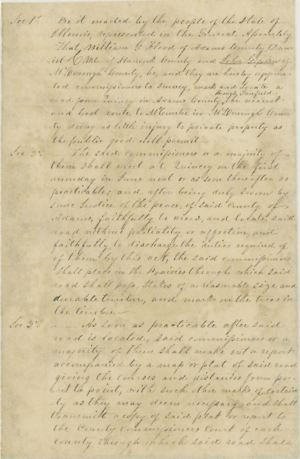 Sec 1st Be it enacted by the people of the State of
Illinois, represented in the General Assembly
That William G. Flood of Adams County
of Hancock County and of
McDonough County, be, and they are hereby appoin-
ted commissioners to survey, mark and locate a
road from Quincy in Adams County, the nearest
and best route to Macomb in McDonough County
doing as little injury to private property as
the public good will permit.
Sec 2d The said commissioners or a majority of
them shall meet at Quincy on the first
monday in June next or as soon thereafter as
practicable; and after being duly sworn by
some Justice of the peace, of said County of
Adams, faithfully to view, and locate said
road without partiality or affection, and
faithfully to discharge the duties required of
of them by this act, the said commissioners
shall place in the Prairies through which said
road shall pass, stakes of a reasonable size and
durable timber, and mark on the trees in
the timber
Sec 3d As soon as practicable after said
road is located, said commissioners or a
majority of them shall make out a report
accompanied by a map or plat of said road
giving the courses and distances from poi-
nt to point, with such other marks of certain-
ty as they may deem necessary and shall
transmit a copy of said plat or report to
the County Commissioners Court of each
county through which said road shall